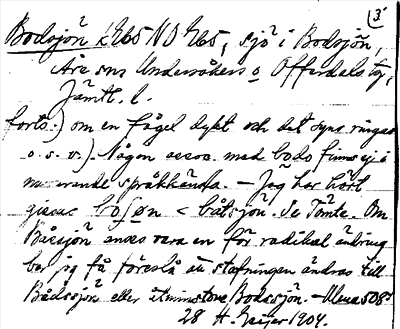 3
Bodsjön k 265 NO 265, sjö i Bodsjön,
Åre sns Undersåkers o Offerdals tg,
Jämtl. l.
forts.) om en fågel dykt och det syns ringar
o.s.v.). Någon assoc. med bods finns ej i
nuvarande språkkänsla. – Jag har hört
bosøn < båtsjön. Se Tömte. Om
Båtsjön anses vara en för radikal ändring
bör jag få föreslå att stafningen ändras till
Bådsjön eller åtminstone Bodssjön. –
28 H. Geijer 1904.